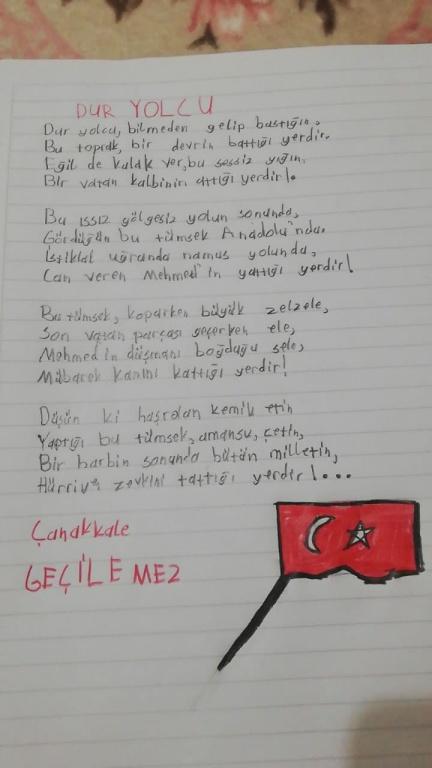 DUR YOLCU
Dur yolcu, bilmeden gelip bastığın,
Bu toprak, bir devrin battığı yerdir.
Eğil de kulak ver, bu sessiz yığın,
Bir vatan kalbinin attığı yerdir!.
Bu ıssız gölgesiz yolun sonunda,
Gördüğün bu tümsek Anadolu'nda.
İstiklal uğrunda namus yolunda,
Can veren Mehmed'in yattığı yerdir!
Bu tümsek, koparken büyük zelzele,
Son vatan parçası geçerken ele,
Mehmed'in düşmanı boğduğu sele,
Mübarek kanını kattığı yerdir!
Düşün ki haşrolan kemik etin
Yaptığı bu tümsek, amansız, çetin,
Bir harbin sonunda bütün milletin,
Hürriyet zevkini tattığı yerdir!...
Çanakkale
GEÇİLEMEZ